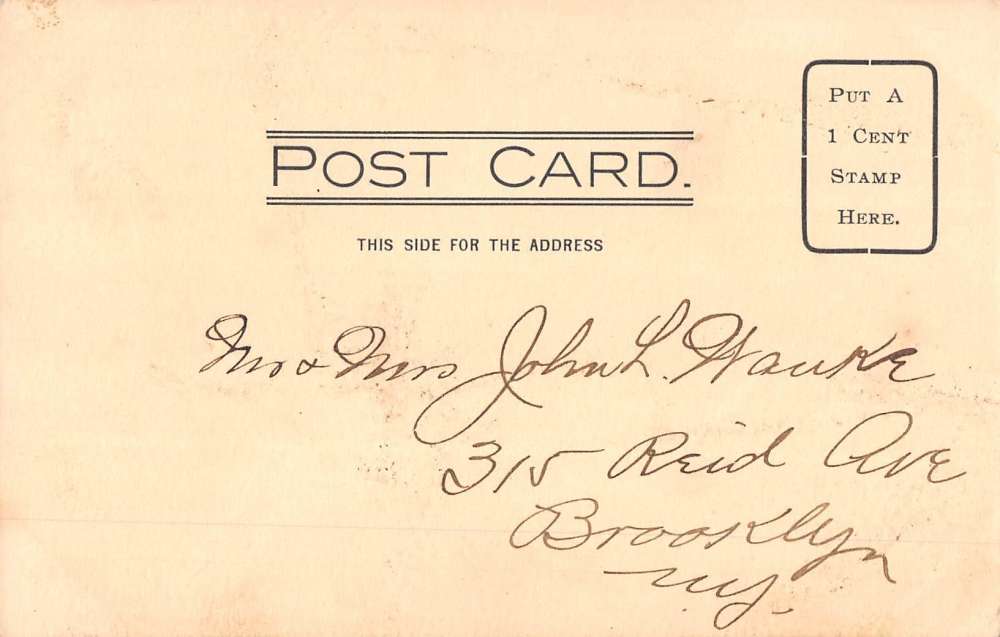 POST CARD.
THIS SIDE FOR THE ADDRESS
PUT A
1 CENT
STAMP
HERE.
Mr & Mrs John L. Wanke
315 Reid Ave
Brooklyn
NY.